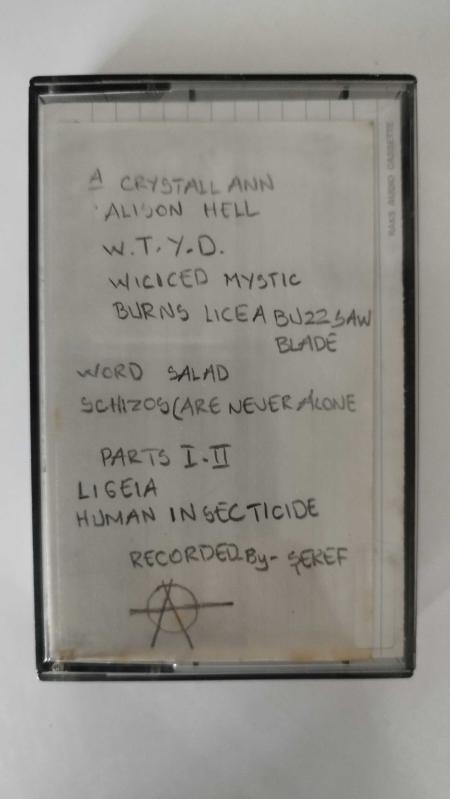 A CRYSTALL ANN
ALISON HELL
W.T.Y.D.
WICICED MYSTIC
BURNS LICEA BUZZSAW
BLADE
WORD SALAD
SCHIZOS(ARE NEVER ALONE
PARTS I-II
LIGEIA
HUMAN INSECTICIDE
RECORDED By- ŞEREF
A
RAKS AUDIO CASSETTE